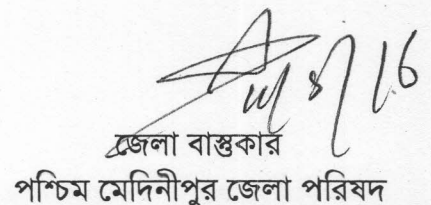 জেলা বাস্তুকার
পশ্চিম মেদিনীপুর জেলা পরিষদ